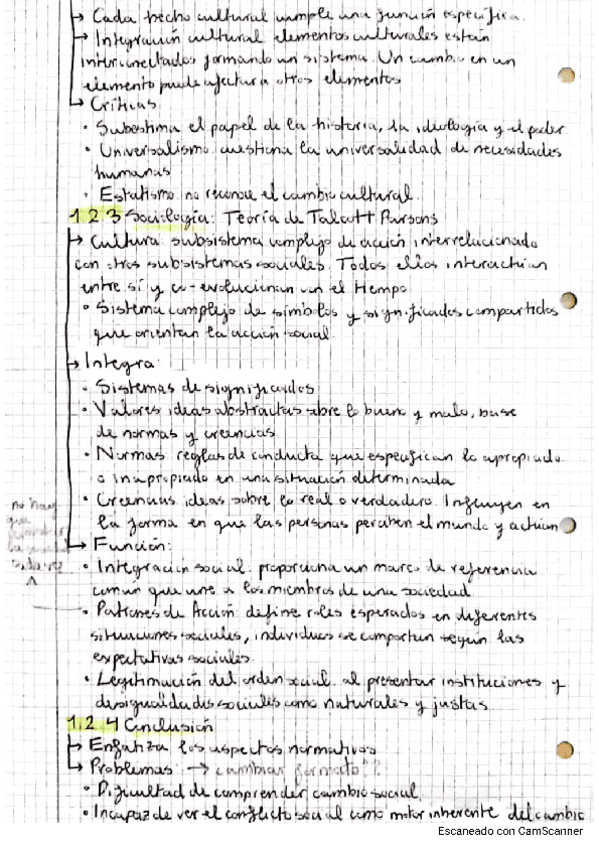 → Cada hecho cultural cumple una función específica.
→ Integración cultural elementos culturales están
interconectados formando un sistema. Un cambio en un
elemento puede afectar a otros elementos
→ Críticas
• Subestima el papel de la historia, la ideología y el poder
• Universalismo cuestiona la universalidad de necesidades
humanas
• Estatismo no reconoce el cambio cultural.
1.2.3 Sociología: Teoría de Talcott Parsons
→ Cultura: subsistema complejo de acción interrelacionado
con otros subsistemas sociales. Todos ellos interactúan
entre sí y co-evolucionan con el tiempo
• Sistema complejo de símbolos y significados compartidos
que orientan la acción social.
→ Integra:
• Sistemas de significados
• Valores ideas abstractas sobre lo bueno y malo, base
de normas y creencias.
• Normas reglas de conducta que especifican lo apropiado
o inapropiado en una situación determinada
• Creencias ideas sobre lo real o verdadero. Influyen en
la forma en que las personas perciben el mundo y actúan
no hay
que
→ Función:
• Integración social. proporciona un marco de referencia
común que une a los miembros de una sociedad
• Patrones de Acción. define roles esperados en diferentes
situaciones sociales, individuos se comportan según las
expectativas sociales.
• Legitimación del orden social. al presentar instituciones y
desigualdades sociales como naturales y justas
1.2.4 Conclusión
→ Enfatiza los aspectos normativos
→ Problemas: → cambiar formato??
• Dificultad de comprender cambio social.
• Incapaz de ver el conflicto social como motor inherente del cambio
Escaneado con CamScanner